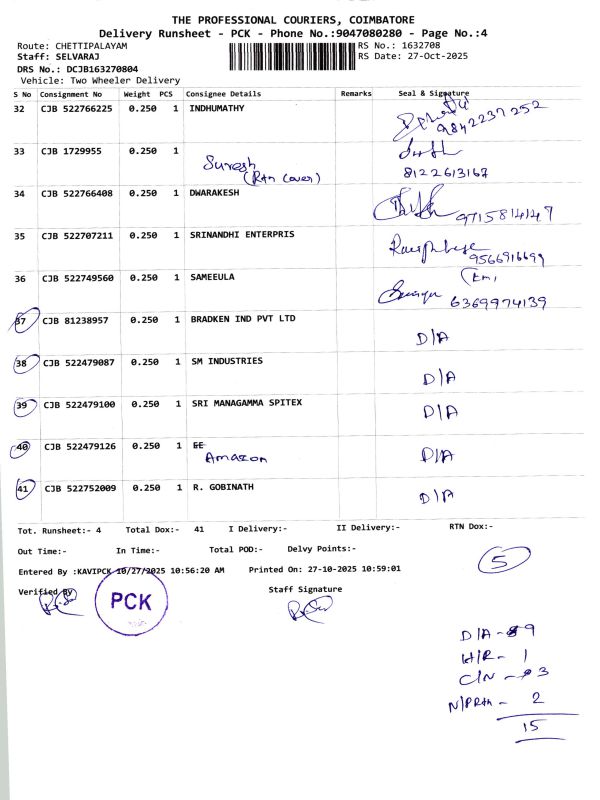 THE PROFESSIONAL COURIERS, COIMBATORE
Delivery Runsheet - PCK - Phone No.:9047080280 - Page No.:4
Route: CHETTIPALAYAM RS No.: 1632708
Staff: SELVARAJ RS Date: 27-Oct-2025
DRS No.: DCJB163270804
Vehicle: Two Wheeler Delivery
S No Consignment No Weight PCS Consignee Details Remarks Seal & Signature
32 CJB 522766225 0.250 1 INDHUMATHY
9842237252
33 CJB 1729955 0.250 1
Suresh
(Rtn Cover)
8122613167
34 CJB 522766408 0.250 1 DWARAKESH
9715814147
35 CJB 522707211 0.250 1 SRINANDHI ENTERPRIS
9566916699
36 CJB 522749560 0.250 1 SAMEEULA
6369974139
37 CJB 81238957 0.250 1 BRADKEN IND PVT LTD
D/A
38 CJB 522479087 0.250 1 SM INDUSTRIES
D/A
39 CJB 522479100 0.250 1 SRI MANAGAMMA SPITEX
D/A
40 CJB 522479126 0.250 1 EE
Amazon D/A
41 CJB 522752009 0.250 1 R. GOBINATH
D/A
Tot. Runsheet:- 4 Total Dox:- 41 I Delivery:- II Delivery:- RTN Dox:-
Out Time:- In Time:- Total POD:- Delvy Points:-
5
Entered By :KAVIPCK 10/27/2025 10:56:20 AM Printed On: 27-10-2025 10:59:01
Verified By Staff Signature
PCK
D/A - 9
H/R - 1
C/N - 3
N/PRtn - 2
15